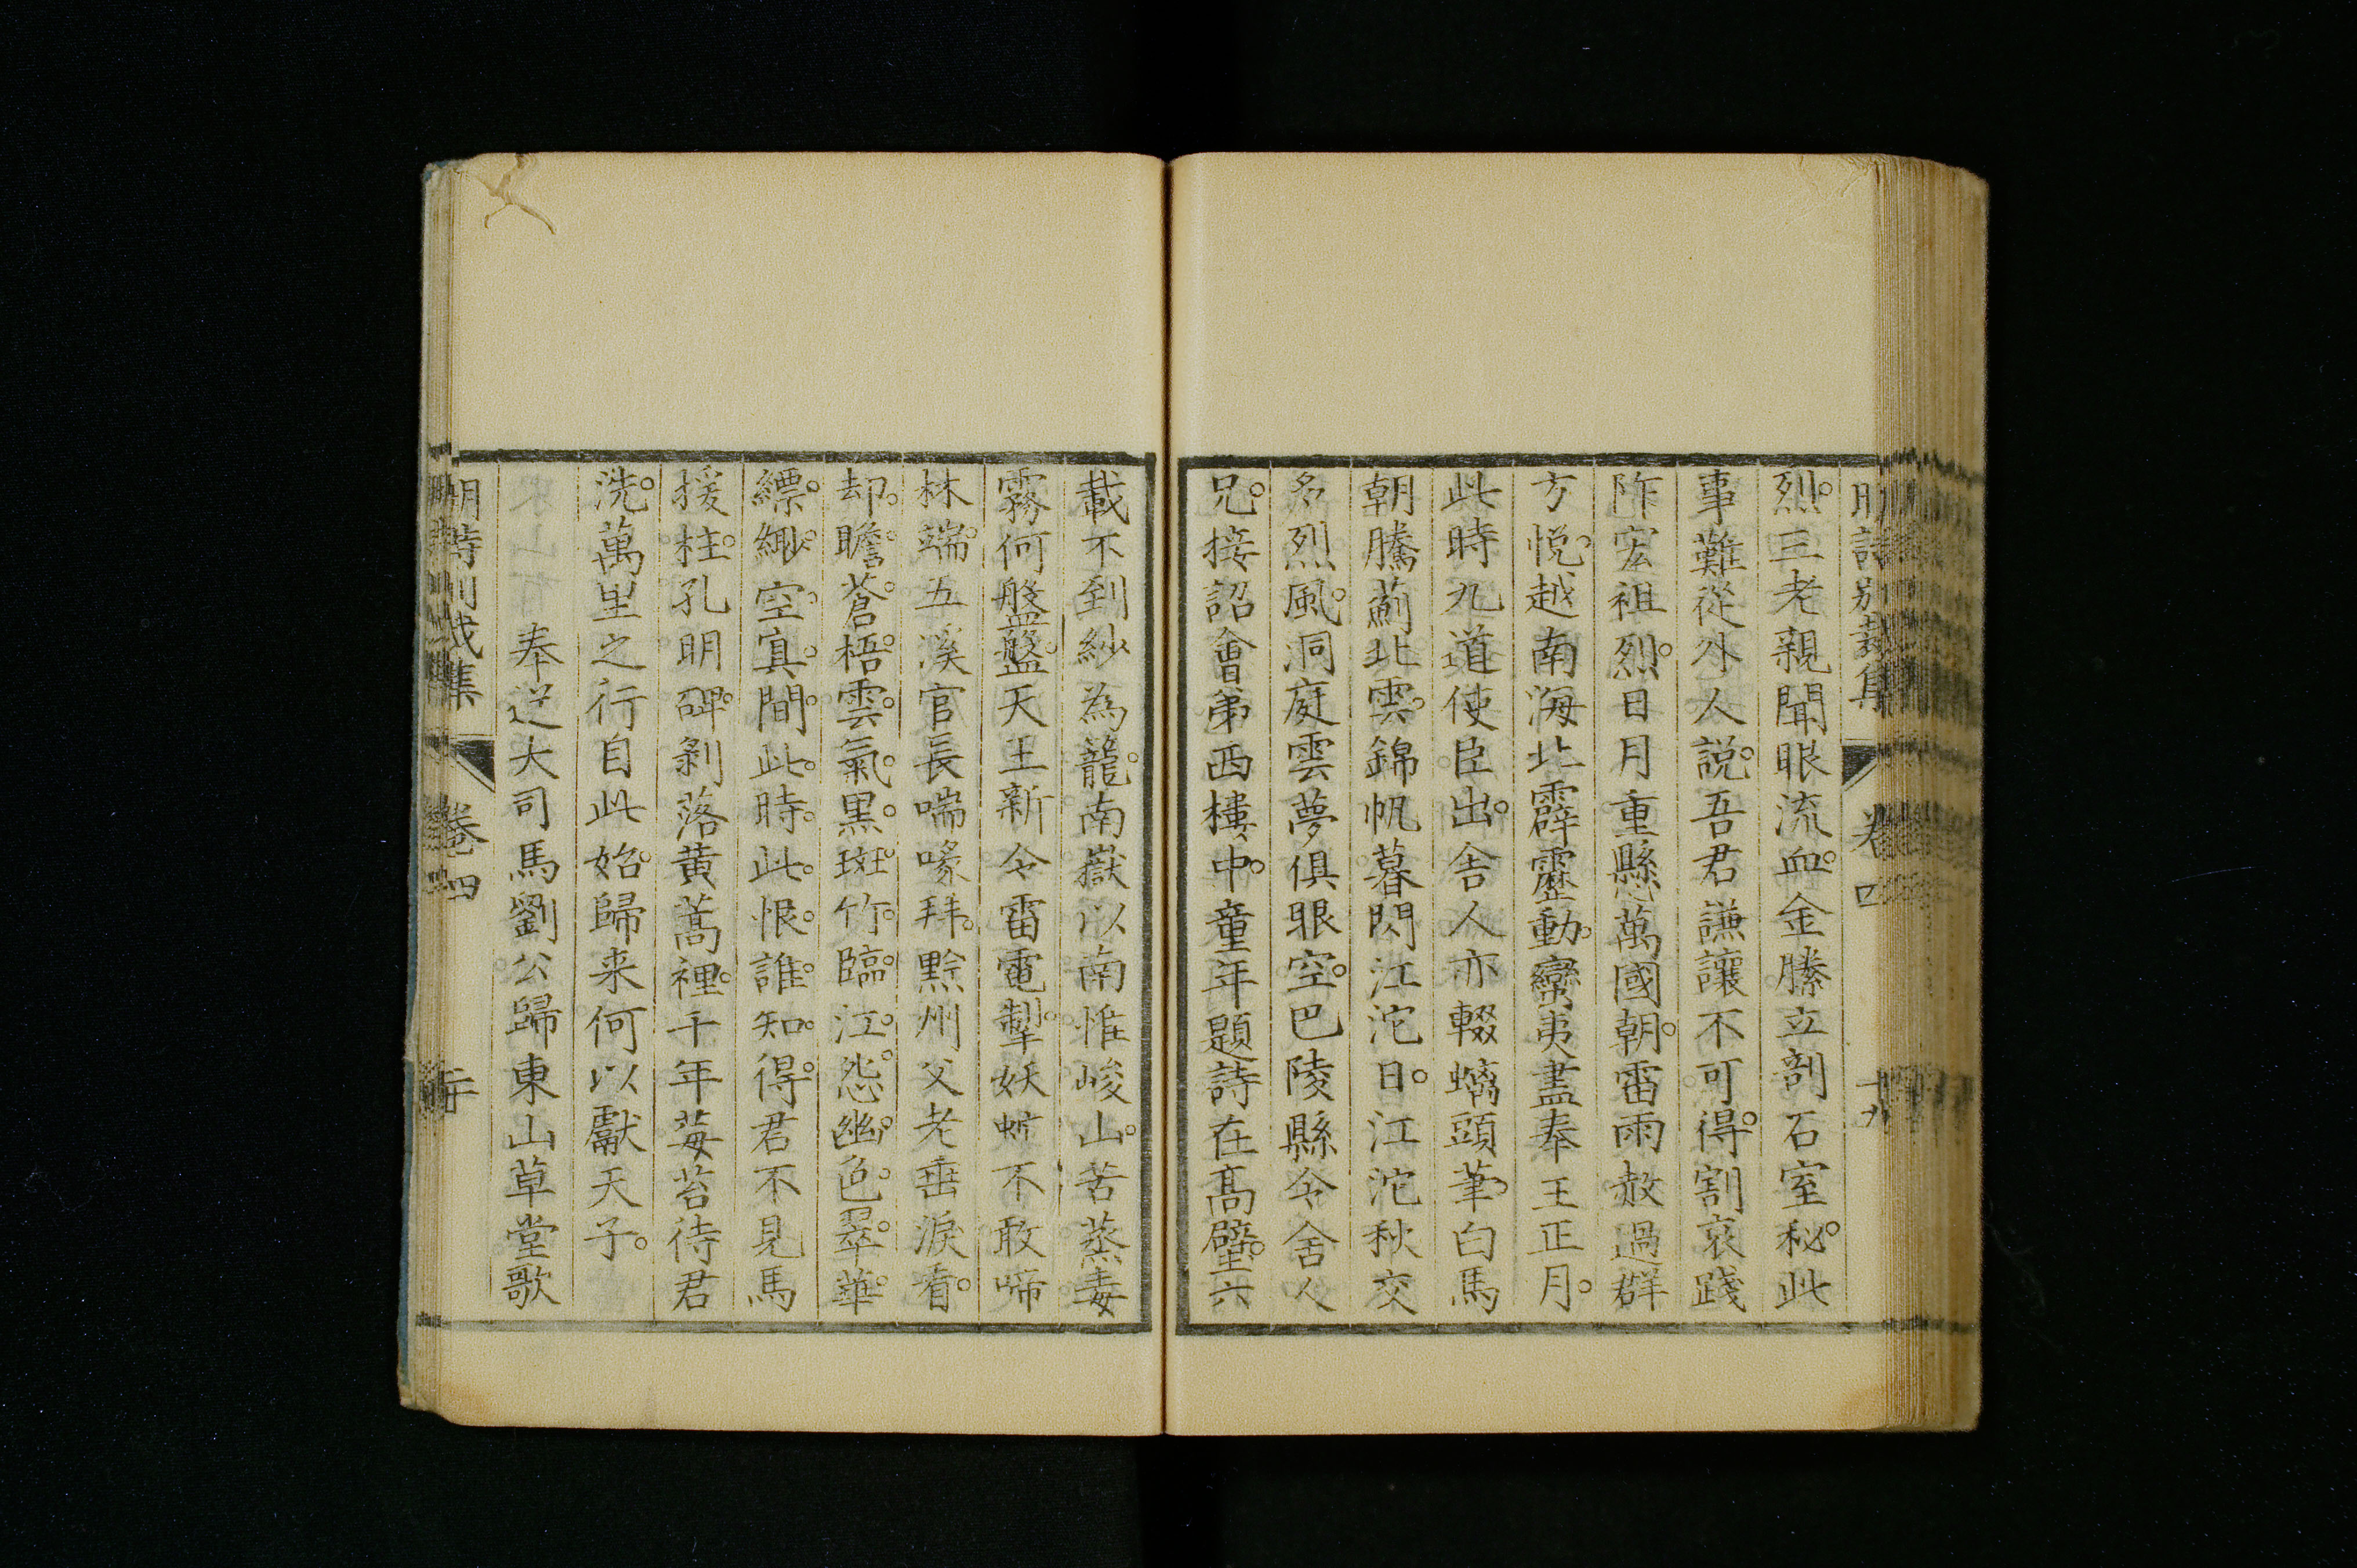 明詩別裁集 卷四 十九
烈。三老親聞眼流血。金縢立剖石室秘。此
事難從外人説。吾君謙讓不可得。割哀踐
阼宏祖烈。日月重懸萬國朝。雷雨赦過群
方悦。越南海北霹靂動。蠻夷盡奉王正月。
此時九道使臣出。舍人亦輟螭頭筆。白馬
朝騰薊北雲。錦帆暮閃江沱日。江沱秋交
多烈風。洞庭雲夢俱眼空。巴陵縣令舍人
兄。接詔會弟西樓中。童年題詩在高壁。六
載不到紗為籠。南嶽以南惟峻山。苦蒸毒
霧何盤盤。天王新令雷電掣。妖蚖不敢啼
林端。五溪官長喘喙拜。黔州父老垂淚看。
却瞻蒼梧雲氣黒。斑竹臨江怨幽色。翠華
縹緲空寘間。此時此恨誰知得。君不見馬
援柱。孔明碑。剝落黄蒿裡。千年莓苔待君
洗。萬里之行自此始。歸来何以獻天子。
奉送大司馬劉公歸東山草堂歌
明詩別裁集 卷四 二十